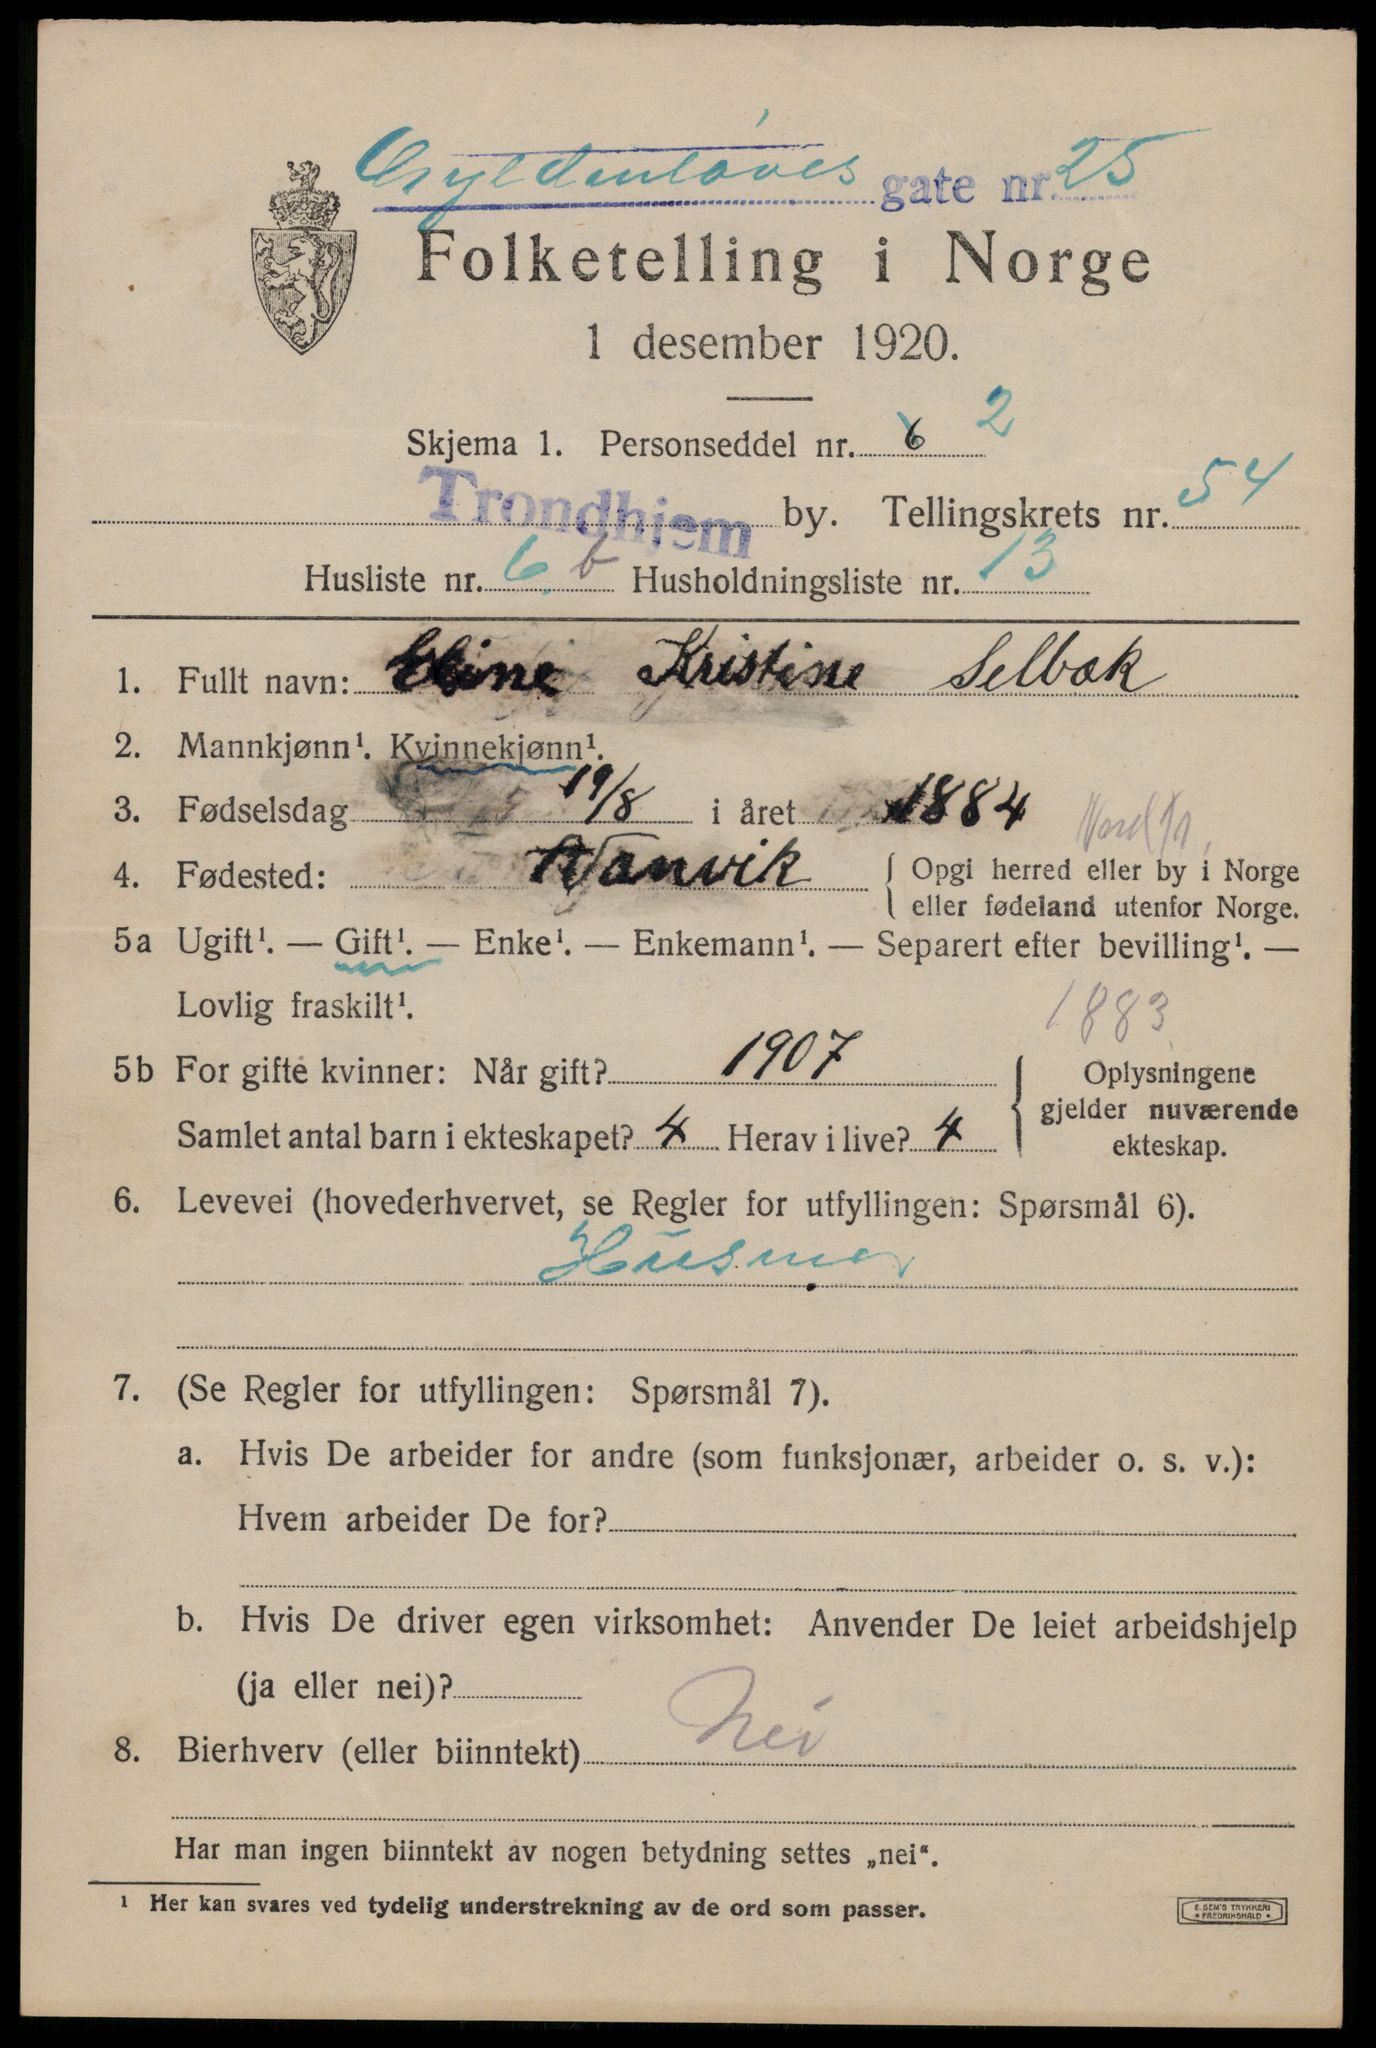 Gyldenløves gate nr. 25
Folketelling i Norge
1 desember 1920.
Skjema 1. Personseddel nr. 6 2
Trondhjem by. Tellingskrets nr. 54
Husliste nr. 6 b Husholdningsliste nr. 13
1. Fullt navn: Eline Kristine Selbak
2. Mannkjønn¹. Kvinnekjønn¹.
3. Fødselsdag 19/8 i året 1884
4. Fødested: Vanvik { Opgi herred eller by i Norge
eller fødeland utenfor Norge.
5a Ugift¹. — Gift¹. — Enke¹. — Enkemann¹. — Separert efter bevilling¹. —
Lovlig fraskilt¹.
1883
5b For gifte kvinner: Når gift? 1907 { Oplysningene
gjelder nuværende
ekteskap.
Samlet antal barn i ekteskapet? 4 Herav i live? 4
6. Levevei (hovederhvervet, se Regler for utfyllingen: Spørsmål 6).
Husmor
7. (Se Regler for utfyllingen: Spørsmål 7).
a. Hvis De arbeider for andre (som funksjonær, arbeider o. s. v.):
Hvem arbeider De for?
b. Hvis De driver egen virksomhet: Anvender De leiet arbeidshjelp
(ja eller nei)?
8. Bierhverv (eller biinntekt) Nei
Har man ingen biinntekt av nogen betydning settes „nei“.
¹ Her kan svares ved tydelig understrekning av de ord som passer.
E. SEM'S TRYKKERI
• FREDRIKSHALD •